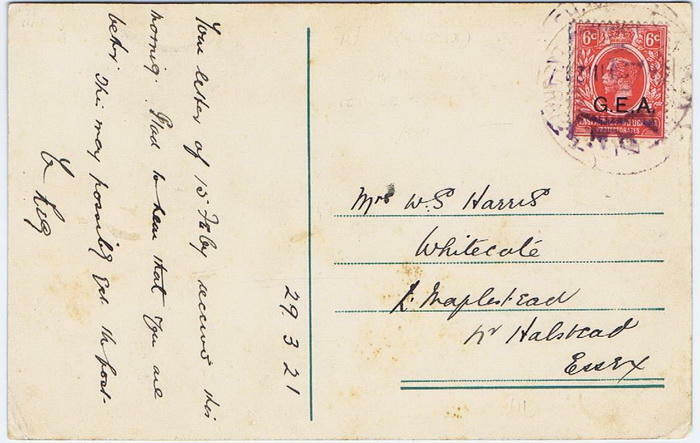 Your letter of 15 Feby received this
morning. Glad to hear that you are
better. This may possibly get the boat-
C Reg
29.3.21
6c 6c
G.E.A.
EAST AFRICA AND UGANDA
PROTECTORATES
Mrs W.S Harris
Whitecote
Maplestead
Nr Halstead
Essex